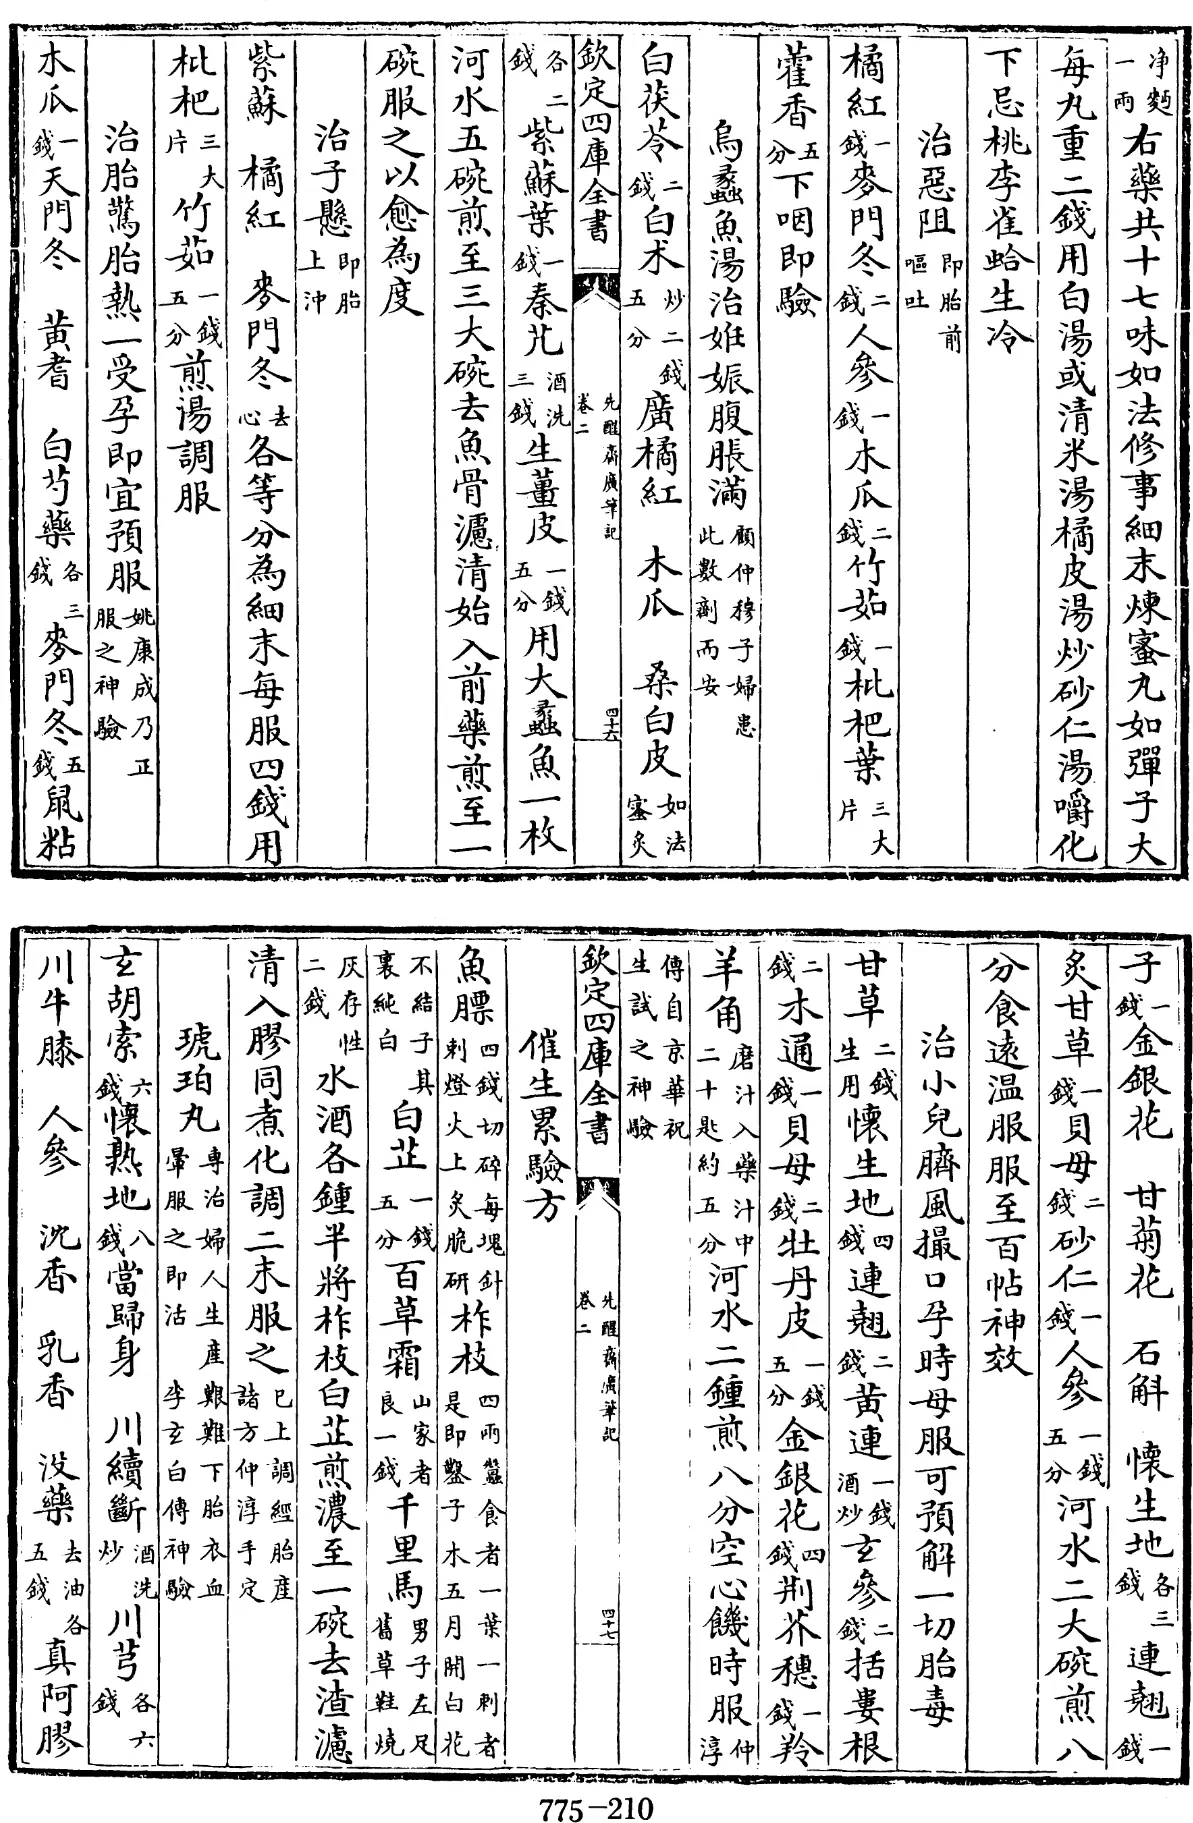 净麪一兩右藥共十七味如法修事細末煉蜜丸如彈子大
每丸重二錢用白湯或清米湯橘皮湯炒砂仁湯嚼化
下忌桃李雀蛤生冷
治惡阻即胎前嘔吐
橘紅一錢麥門冬二錢人參一錢木瓜二錢竹茹一錢枇杷葉三大片
藿香五分下咽即驗
烏蠡魚湯治姙娠腹脹滿顧仲穆子婦患此數劑而安
白茯苓二錢白术炒二錢五分廣橘紅 木瓜 桑白皮如法蜜炙
欽定四庫全書 先醒齋廣筆記 卷二 四十六
各二錢紫蘇葉一錢秦艽酒洗三錢生薑皮一錢五分用大蠡魚一枚
河水五碗煎至三大碗去魚骨濾清始入前藥煎至一
碗服之以愈為度
治子懸即胎上沖
紫蘇 橘紅 麥門冬去心各等分為細末每服四錢用
枇杷三大片竹茹一錢五分煎湯調服
治胎驚胎熱一受孕即宜預服姚康成乃正服之神驗
木瓜一錢天門冬 黄耆 白芍藥各三錢麥門冬五錢鼠粘
子一錢金銀花 甘菊花 石斛 懐生地各三錢連翹一錢
炙甘草一錢貝母二錢砂仁一錢人參一錢五分河水二大碗煎八
分食遠温服服至百帖神效
治小兒臍風撮口孕時母服可預解一切胎毒
甘草二錢生用懐生地四錢連翹二錢黄連一錢酒炒玄參二錢括蔞根
二錢木通一錢貝母二錢牡丹皮一錢五分金銀花四錢荆芥穗一錢羚
羊角磨汁入藥汁中二十匙約五分河水二鍾煎八分空心饑時服仲淳
傳自京華祝生試之神驗
欽定四庫全書 先醒齋廣筆記 卷二 四十七
催生累驗方
魚膘四錢切碎每塊針刺燈火上炙脆研柞枝四兩蠶食者一葉一刺者是即鑿子木五月開白花
不結子其裏純白白芷一錢五分百草霜山家者良一錢千里馬男子左足舊草鞋燒
灰存性二錢水酒各鍾半將柞枝白芷煎濃至一碗去渣濾
清入膠同煮化調二末服之已上調經胎産諸方仲淳手定
琥珀丸專治婦人生産艱難下胎衣血暈服之即活李玄白傳神驗
玄胡索六錢懐熟地八錢當歸身 川續斷酒洗炒川芎各六錢
川牛膝 人參 沈香 乳香 没藥去油各五錢真阿膠
775-210